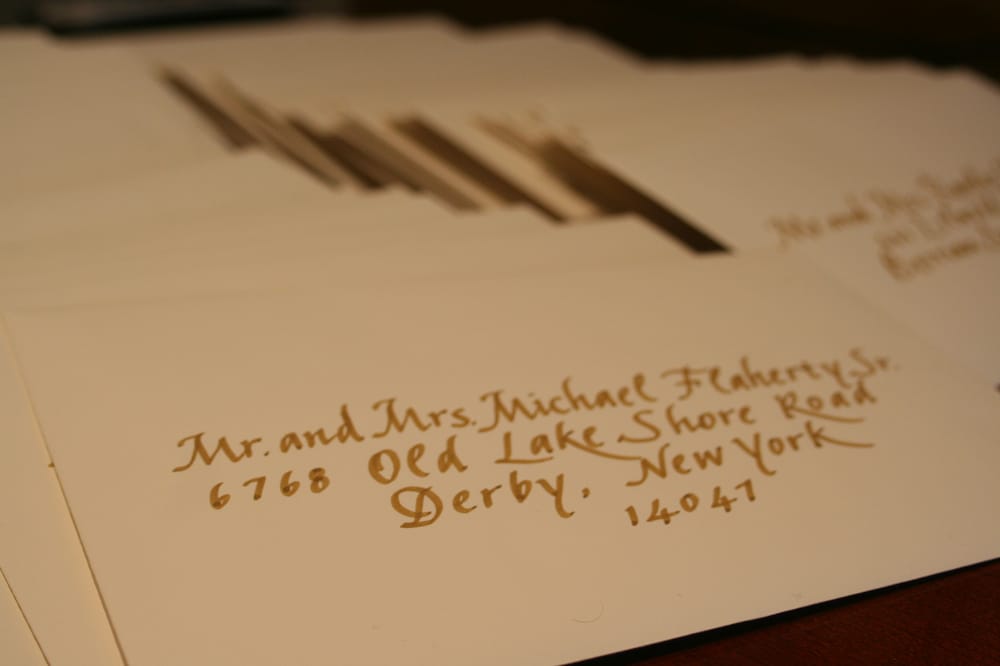 Mr. and Mrs. Michael Flaherty Sr.
6768 Old Lake Shore Road
Derby, New York
14047
Mr and Mrs